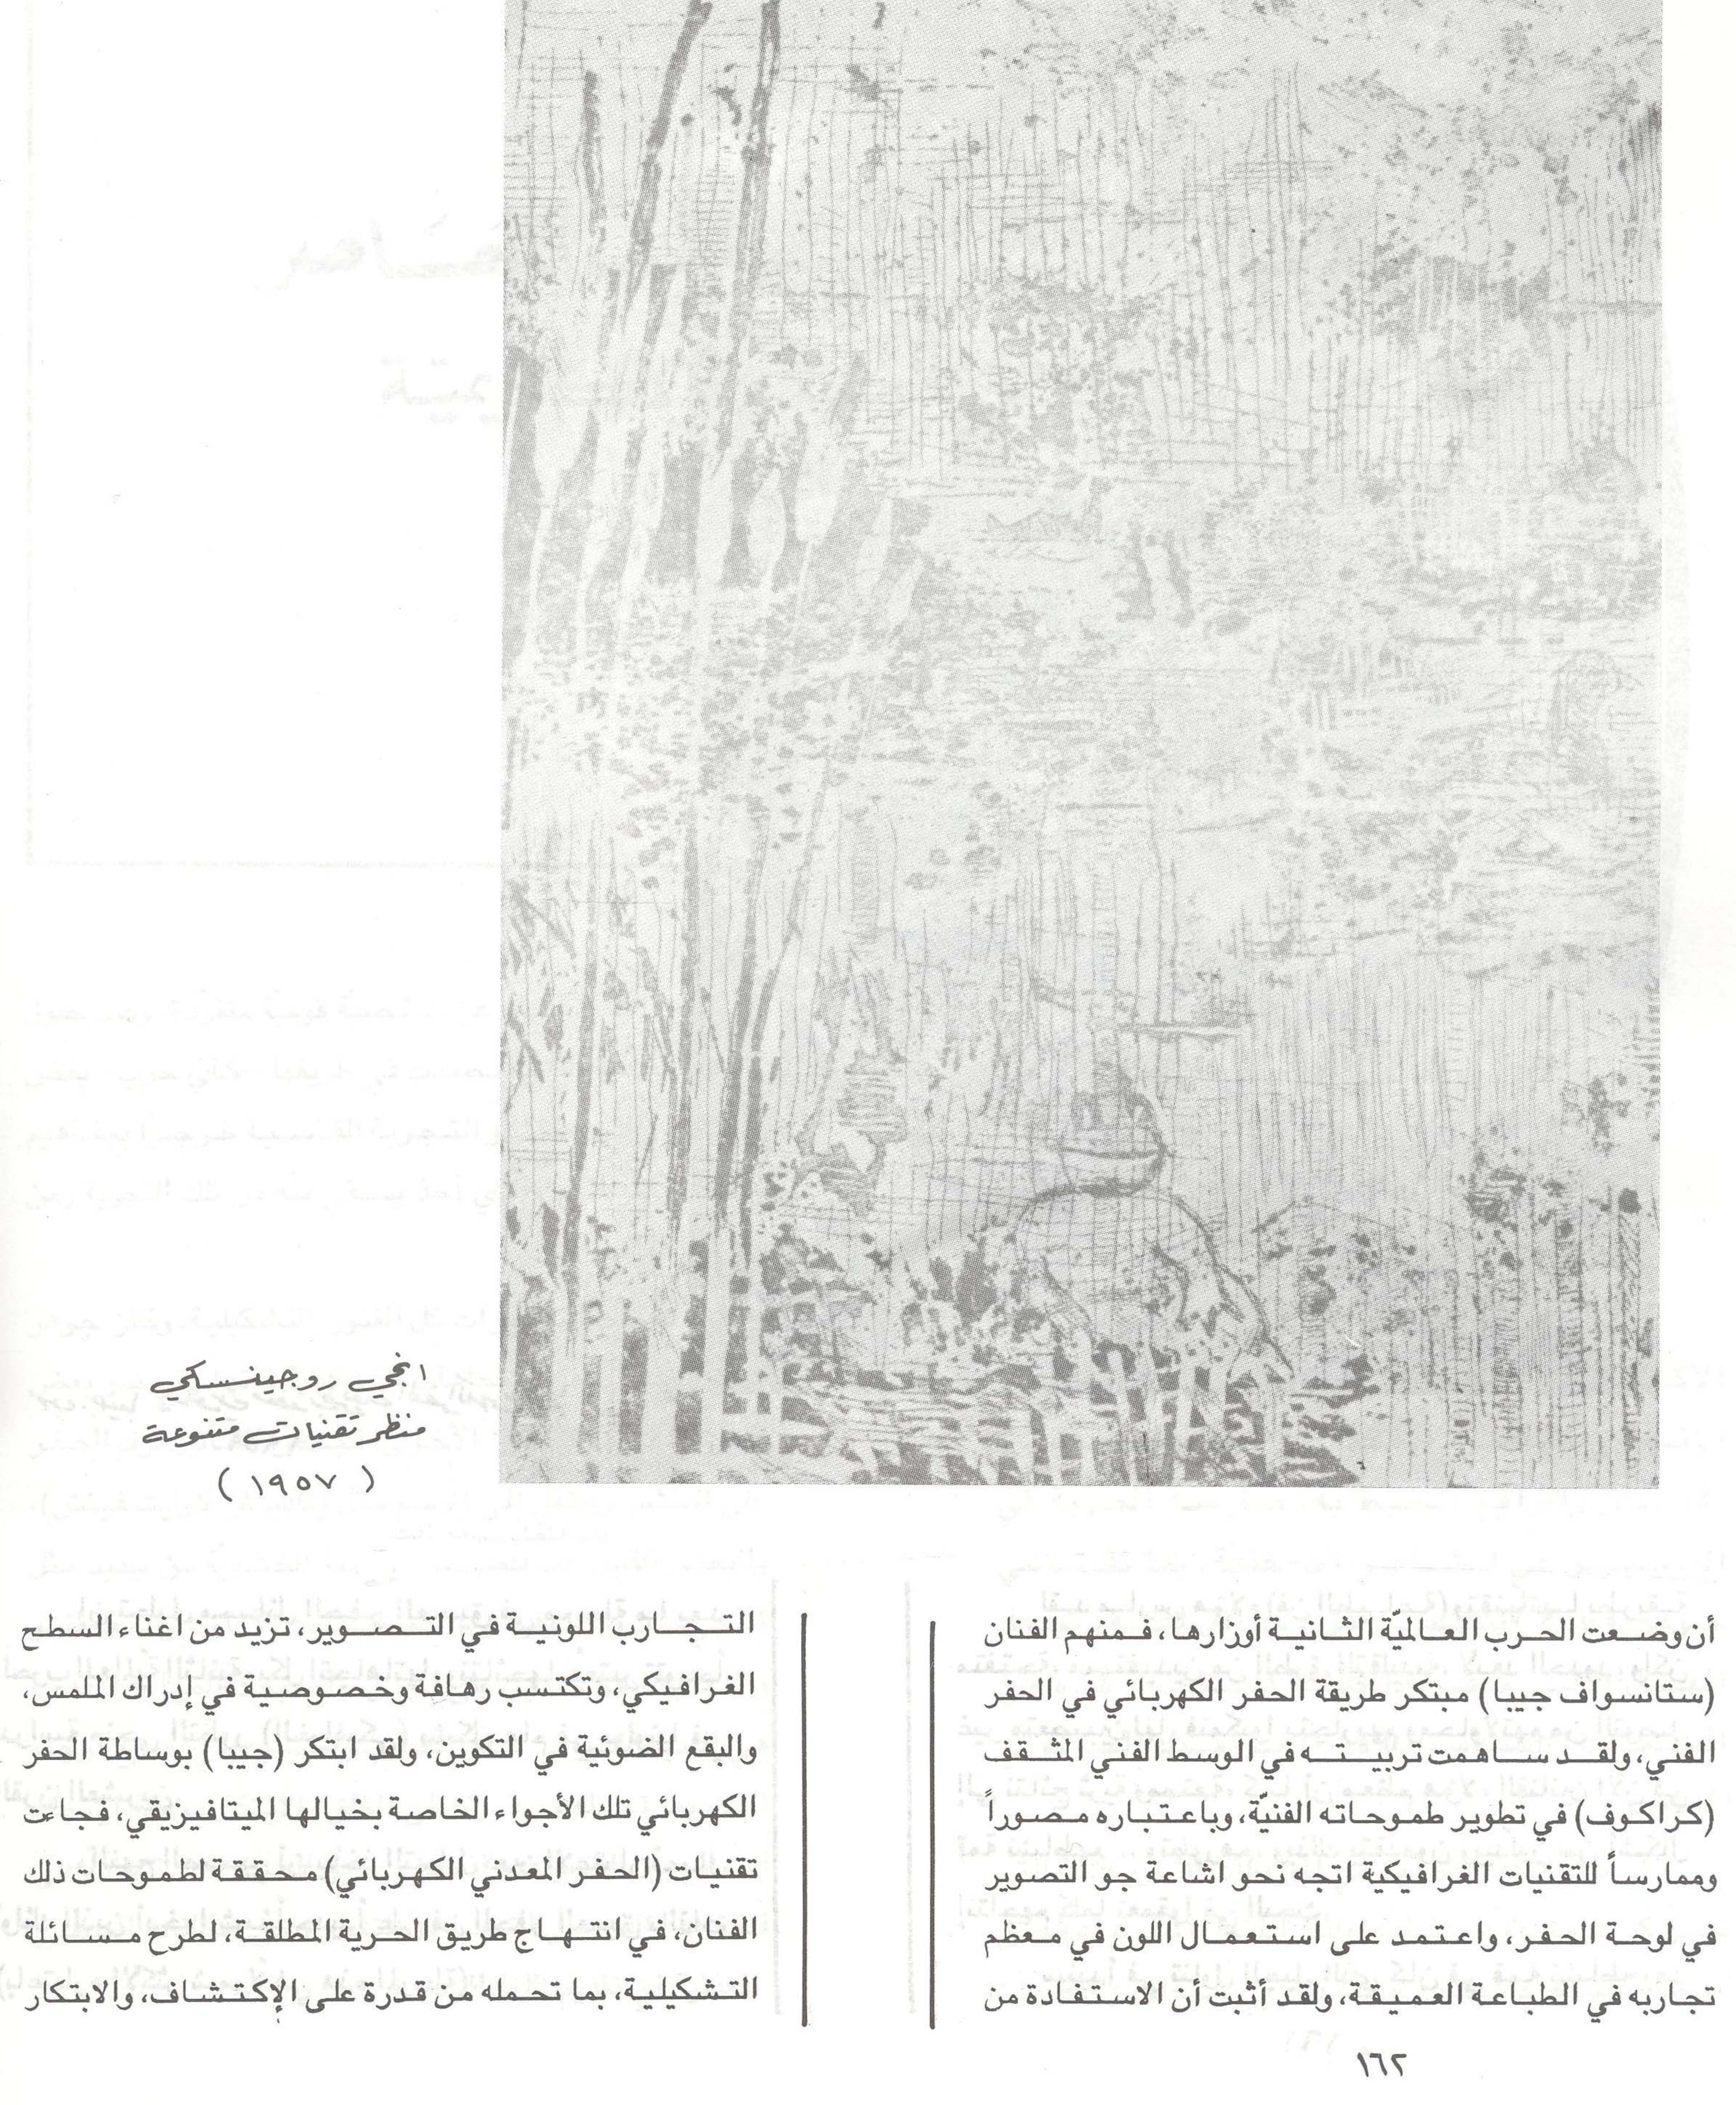 انجي روجينسكي
منظر تقنيات متنوعة
( ١٩٥٧ )
أن وضعت الحرب العالميّة الثانية أوزارها، فمنهم الفنان
(ستانسواف جيبا) مبتكر طريقة الحفر الكهربائي في الحفر
الفني، ولقد ساهمت تربيته في الوسط الفني المثقف
(كراكوف) في تطوير طموحاته الفنيّة، وباعتباره مصوراً
وممارساً للتقنيات الغرافيكية اتجه نحو اشاعة جو التصوير
في لوحة الحفر، واعتمد على استعمال اللون في معظم
تجاربه في الطباعة العميقة، ولقد أثبت أن الاستفادة من
التجارب اللونية في التصوير، تزيد من اغناء السطح
الغرافيكي، وتكتسب رهافة وخصوصية في إدراك الملمس،
والبقع الضوئية في التكوين، ولقد ابتكر (جيبا) بوساطة الحفر
الكهربائي تلك الأجواء الخاصة بخيالها الميتافيزيقي، فجاءت
تقنيات (الحفر المعدني الكهربائي) محققة لطموحات ذلك
الفنان، في انتهاج طريق الحرية المطلقة، لطرح مسائلة
التشكيلية، بما تحمله من قدرة على الإكتشاف، والابتكار
١٦٢